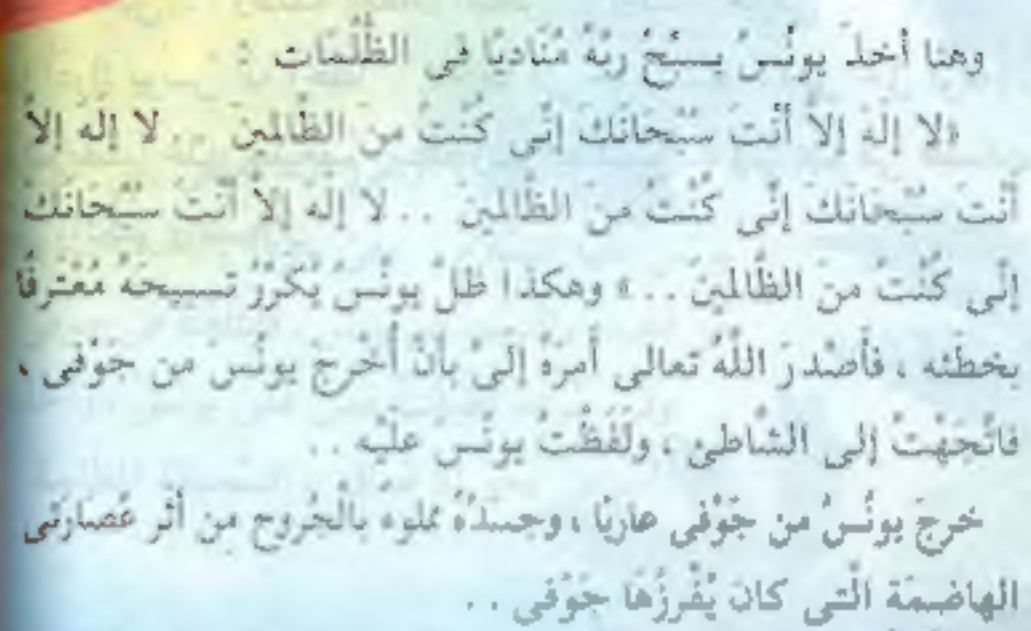 وهنا أخذَ يونُسُ يسبِّحُ ربَّهُ مُنَاديًا فى الظُّلُمَات :
«لا إلَهَ إلاَّ أنْتَ سُبْحانَكَ إنِّى كُنْتُ من الظَّالمينَ .. لا إلَهَ إلاَّ
أَنْتَ سُبْحَانَكَ إنِّى كُنْتُ منَ الظَّالمينَ .. لا إلَهَ إلاَّ أنْتَ سُبْحَانَكَ
إنِّى كُنْتُ منَ الظَّالمينَ ..» وهكذا ظلَّ يونُسُ يُكَرِّرُ تسبيحَهُ مُعْتَرفًا
بخطئه ، فأصْدرَ اللَّهُ تعالى أمرَهُ إلىَّ بأنْ أُخْرجَ يونُسَ من جَوْفى ،
فاتَّجَهْتُ إلى الشَّاطئ ، ولَفَظْتُ يونُسَ علَيْه ..
خرجَ يونُسُ من جَوْفى عاريًا ، وجسدُهُ مملوءٌ بالْجُروح من أثَر عُصَارَتى
الهاضمَة الَّتى كانَ يُفْرزُهَا جَوْفى ..